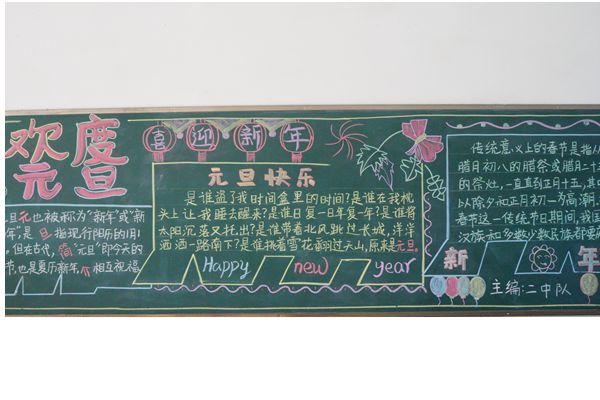 欢度
元旦
喜迎新年
元旦快乐
是谁盗了我时间盒里的时间?是谁在我枕
头上让我睡去醒来?是谁日复一日年复一年?是谁将
太阳沉落又托出?是谁带着北风跳过长城,洋洋
洒洒一路南下?是谁裹着雪花翻过天山,原来是元旦。
Happy new year
旦元也被称为"新年"或"新
年"是旦指现行阳历的1月
,但在古代,简"元旦"即今天的
节,也是夏历新年,相互祝福
传统意义上的春节是指从
腊月初八的腊祭或腊月二十三
的祭灶,一直到正月十五,其中
以除夕和正月初一为高潮。
春节这一传统节日期间,我国
汉族和少数民族都要
新年
主编:二中队